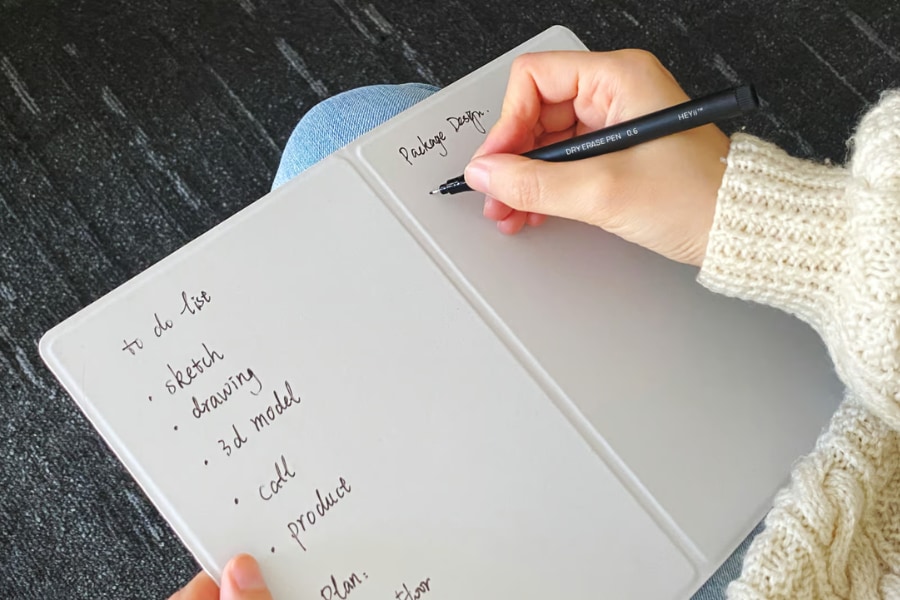 to do list
• sketch
• drawing
• 3d model
• call
• product
Plan:
Package Design.
DRY ERASE PEN 0.6 HEYii™